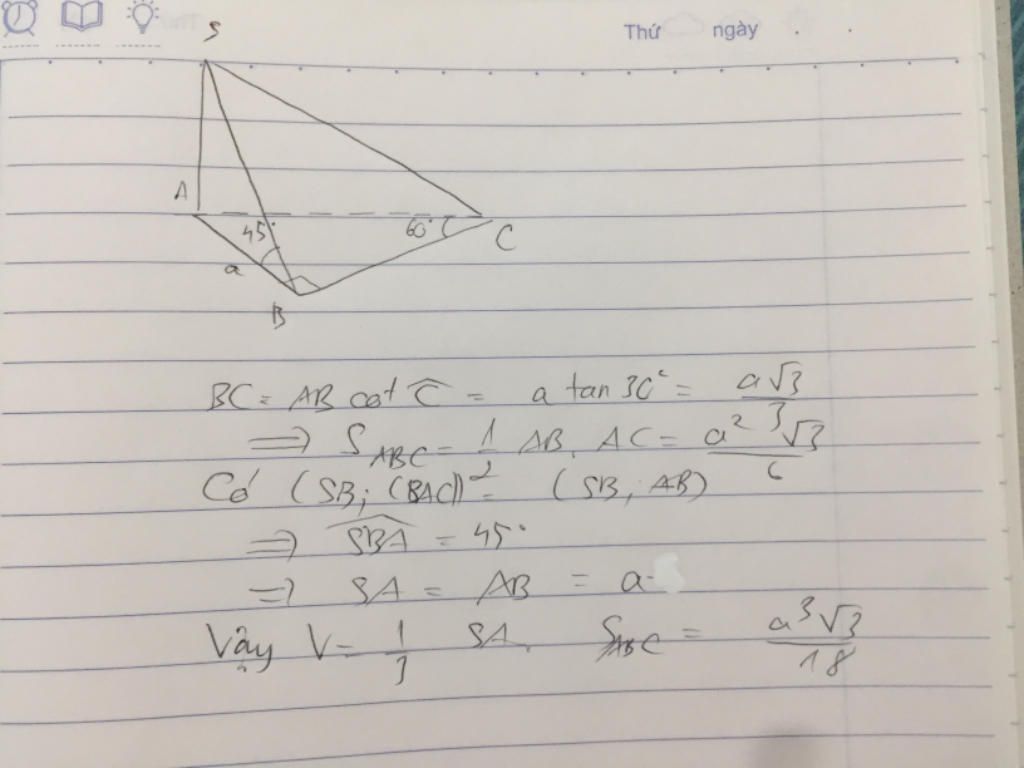 Thứ ngày
S
A
45°
60°
C
a
B
BC = AB cot Ĉ = a tan 30° = a√3/3
⟹ S_ABC = 1/2 AB. AC = a²√3/6
Có (SB; (BAC)) = (SB, AB)
⟹ \widehat{SBA} = 45°
⟹ SA = AB = a
Vậy V = 1/3 SA. S_ABC = a³√3/18